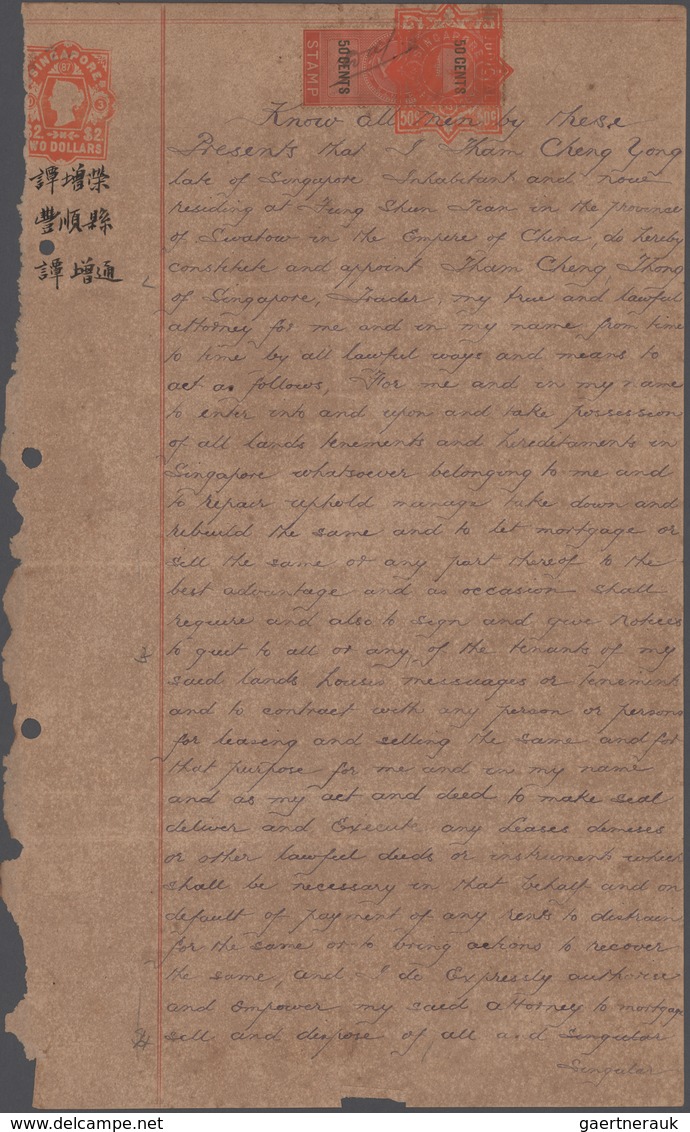 SINGAPORE
$2. $2
TWO DOLLARS
STAMP
50 CENTS
SINGAPORE
50 CENTS
50c
譚增榮
豐順縣
譚增通
Know all men by these
Presents that I Tham Cheng Yong
late of Singapore Inhabitant and now
residing at Fung Shun Tian in the province
of Swatow in the Empire of China, do hereby
constitute and appoint Tham Cheng Thong
of Singapore, Trader, my true and lawful
attorney for me and in my name from time
to time by all lawful ways and means to
act as follows, For me and in my name
to enter into and upon and take possession
of all lands tenements and hereditaments in
Singapore whatsoever belonging to me and
to repair uphold manage take down and
rebuild the same and to let mortgage or
sell the same or any part thereof to the
best advantage and as occasion shall
require and also to sign and give notices
to quit to all or any of the tenants of my
said lands houses messuages or tenements
and to contract with any person or persons
for leasing and selling the same and for
that purpose for me and in my name
and as my act and deed to make seal
deliver and Execute any Leases demises
or other lawful deeds or instruments which
shall be necessary in that behalf and on
default of payment of any rents to distrain
for the same or to bring actions to recover
the same, and I do Expressly authorise
and Empower my said attorney to mortgage
sell and dispose of all and singular
Singular
gaertnerauk